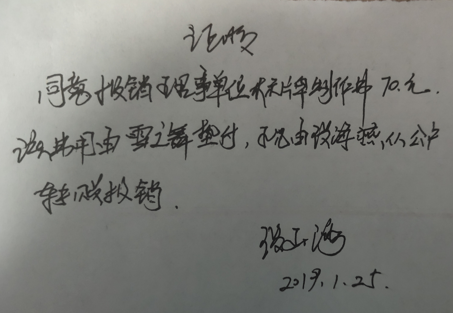 证明
同意报销理事单位标牌制作费70.元.
该费用由雪之舞垫付,可由段海燕从公户
转账报销.
2019.1.25.